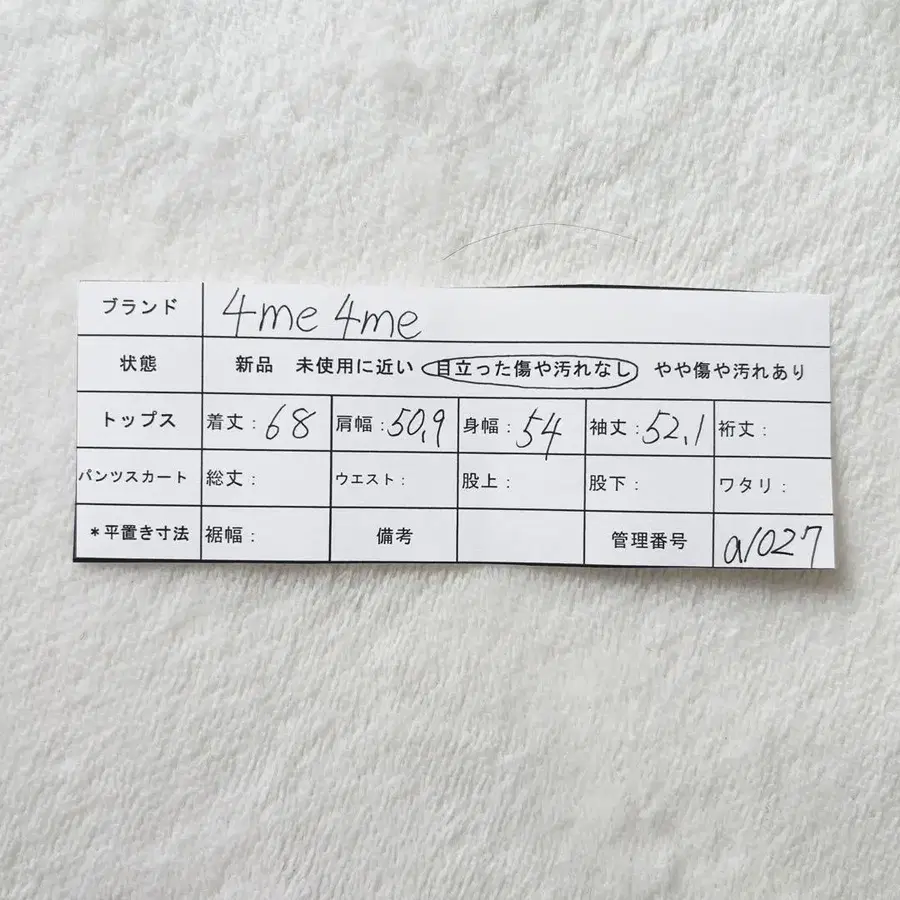 ブランド 4me 4me
状態 新品 未使用に近い 目立った傷や汚れなし やや傷や汚れあり
トップス 着丈: 68 肩幅: 50.9 身幅: 54 袖丈: 52.1 裄丈:
パンツスカート 総丈: ウエスト: 股上: 股下: ワタリ:
*平置き寸法 裾幅: 備考 管理番号 a1027